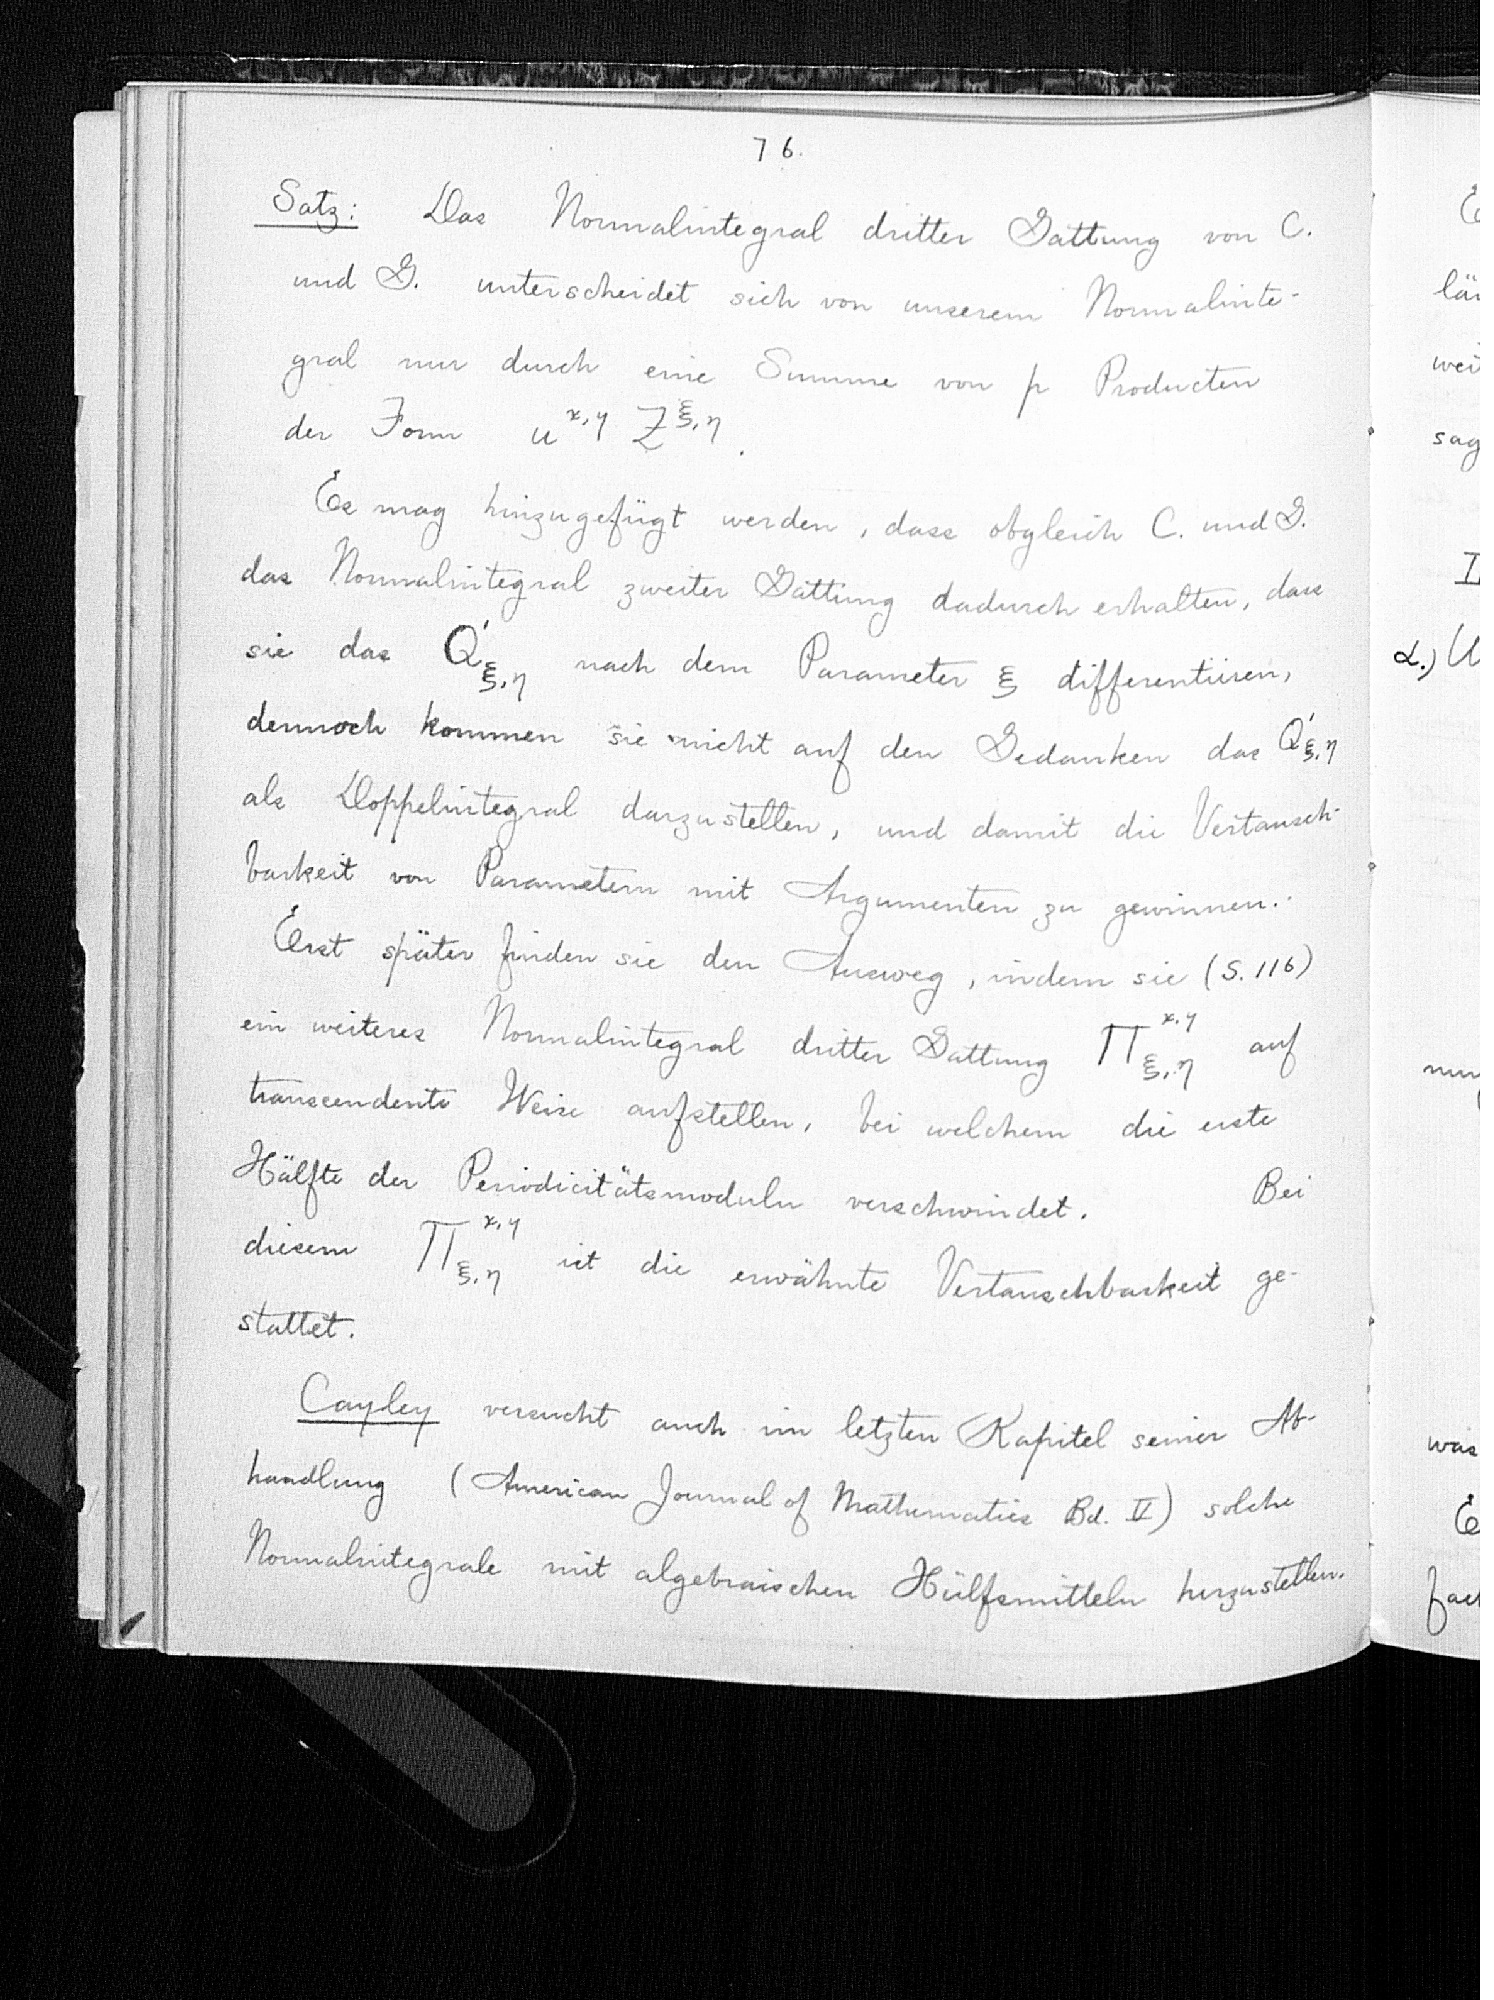 76.
Satz: Das Normalintegral dritter Gattung von C.
und G. unterscheidet sich von unserem Normalinte-
gral nur durch eine Summe von p Producten
der Form u^{x,y} Z^{ξ,η}.
Es mag hinzugefügt werden, dass obgleich C. und G.
das Normalintegral zweiter Gattung dadurch erhalten, dass
sie das Q'_{ξ,η} nach dem Parameter ξ differentiiren,
dennoch kommen sie nicht auf den Gedanken das Q'_{ξ,η}
als Doppelintegral darzustellen, und damit die Vertausch-
barkeit von Parametern mit Argumenten zu gewinnen.
Erst später finden sie den Ausweg, indem sie (S. 116)
ein weiteres Normalintegral dritter Gattung Π^{x,y}_{ξ,η} auf
transcendente Weise aufstellen, bei welchem die erste
Hälfte der Periodicitätsmoduln verschwindet. Bei
diesem Π^{x,y}_{ξ,η} ist die erwähnte Vertauschbarkeit ge-
stattet.
Cayley versucht auch im letzten Kapitel seiner Ab-
handlung (American Journal of Mathematics Bd. V) solche
Normalintegrale mit algebraischen Hülfsmitteln herzustellen.